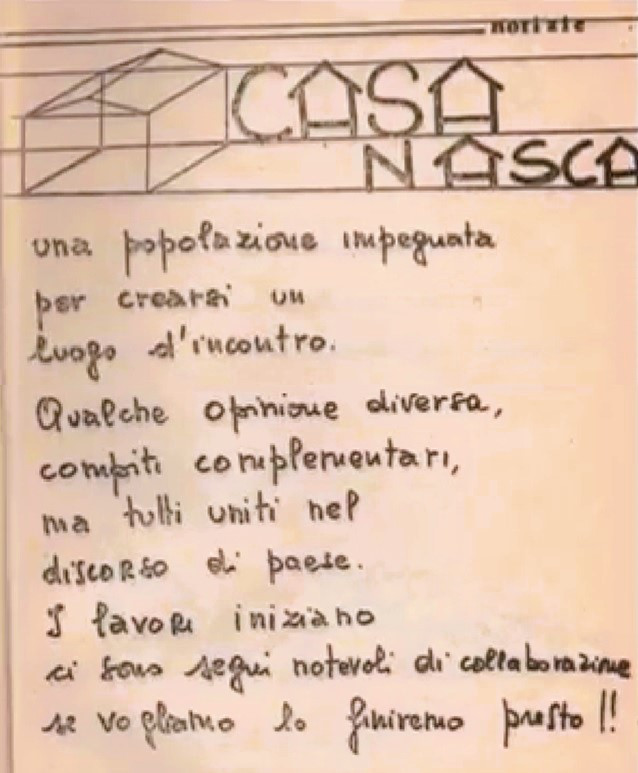 notizie
CASA
NASCA
una popolazione impegnata
per crearsi un
luogo d'incontro.
Qualche opinione diversa,
compiti complementari,
ma tutti uniti nel
discorso di paese.
I lavori iniziano
ci sono segni notevoli di collaborazione
se vogliamo lo finiremo presto!!